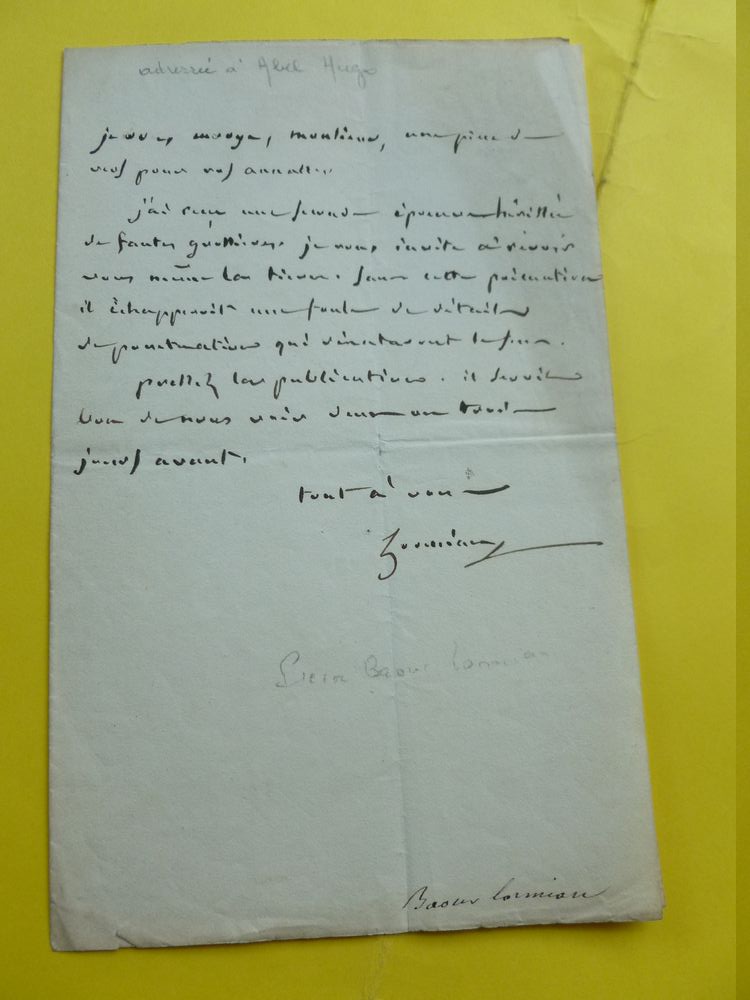 adressée à Abel Hugo
je vous envoye, monsieur, une pièce de
vers pour vos annales
j'ai reçu une seconde épreuve hérissée
de fautes grossières, je vous invite à revoir
vous même la tierce. sans cette précaution
il échapperoit une foule de détails
de ponctuation qui dénaturent le sens.
pressez la publication. il seroit
bon de nous voir deux ou trois
jours avant.
tout à vous
Lormian
Baour Lormian
Baour Lormian